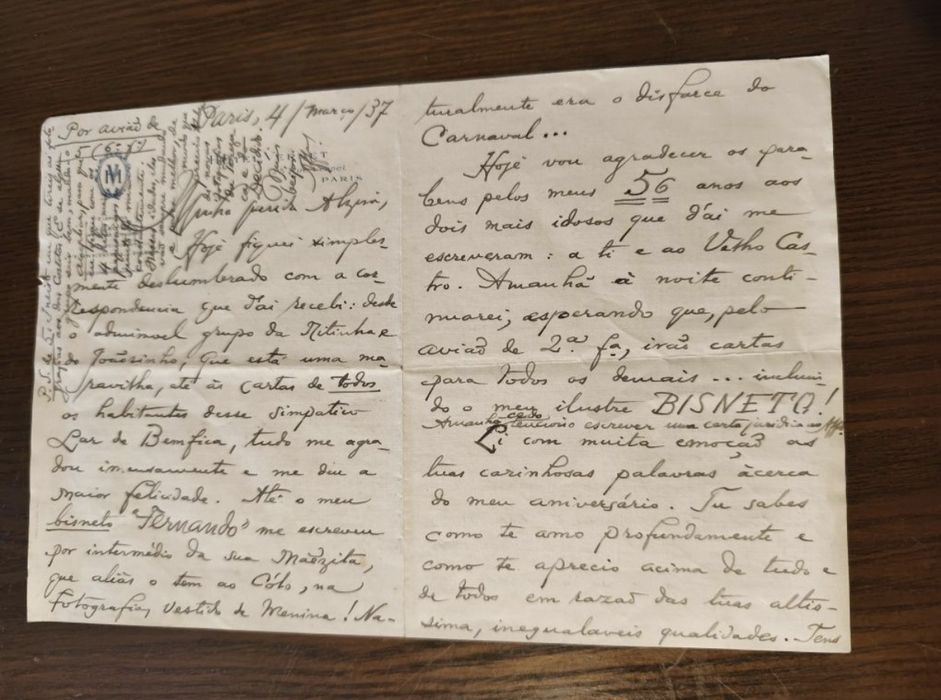 Por avião de
(6-3º)
Paris, 4/Março/37
PARIS
Minha querida Alzira,
Hoje fiquei simples
mente deslumbrado com a cor-
respondencia que d'ai recebi: desde
o admiravel grupo da Titinha e
do Joãosinho, que está uma ma-
ravilha, até ás cartas de todos
os habitantes desse simpatico
Lar de Bemfica, tudo me agra-
dou imensamente e me deu a
maior felicidade. Até o meu
bisneto "Fernando" me escreveu
por intermédio da sua Mãezita,
que aliás o tem ao Cólo, na
fotografia, vestido de Menina! Na-
turalmente era o disfarce do
Carnaval...
Hoje vou agradecer os para-
bens pelos meus 56 anos aos
dois mais idosos que d'ai me
escreveram: a ti e ao Velho Cas-
tro. Amanhã á noite conti-
nuarei, esperando que, pelo
avião de 2.ª fª, irão cartas
para todos os demais... incluin-
do o meu ilustre BISNETO!
Amanhã cedo tenciono escrever uma carta
Li com muita emoção as
tuas carinhosas palavras ácerca
do meu aniversário. Tu sabes
como te amo profundamente e
como te aprecio acima de tudo e
de todos em razão das tuas altis-
sima, inegualaveis qualidades. Tens